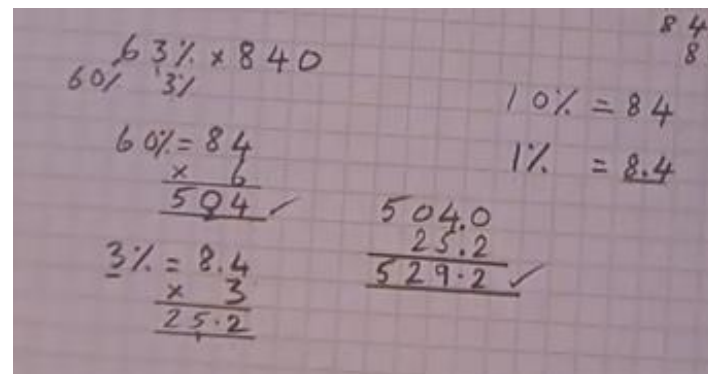 63% x 840
60% 3%
84
8
10% = 84
1% = 8.4
60% = 84
x 6
504 ✓
3% = 8.4
x 3
25.2
504.0
25.2
529.2 ✓